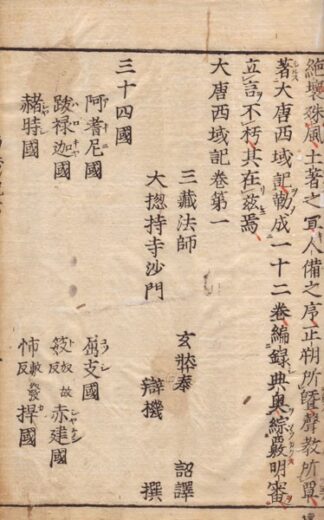 絶壤殊風土著之冝人備之序正朔所曁聲教所單
著大唐西域記勒成一十二卷編録典奥綜覈明審
立言不朽其在茲焉
大唐西域記卷第一
三藏法師　玄奘奉　詔譯
大捴持寺沙門　辯機　撰
三十四國
阿耆尼國　屈支國
跋禄迦國　笯奴故反赤建國
赭時國　怖敷發反捍國